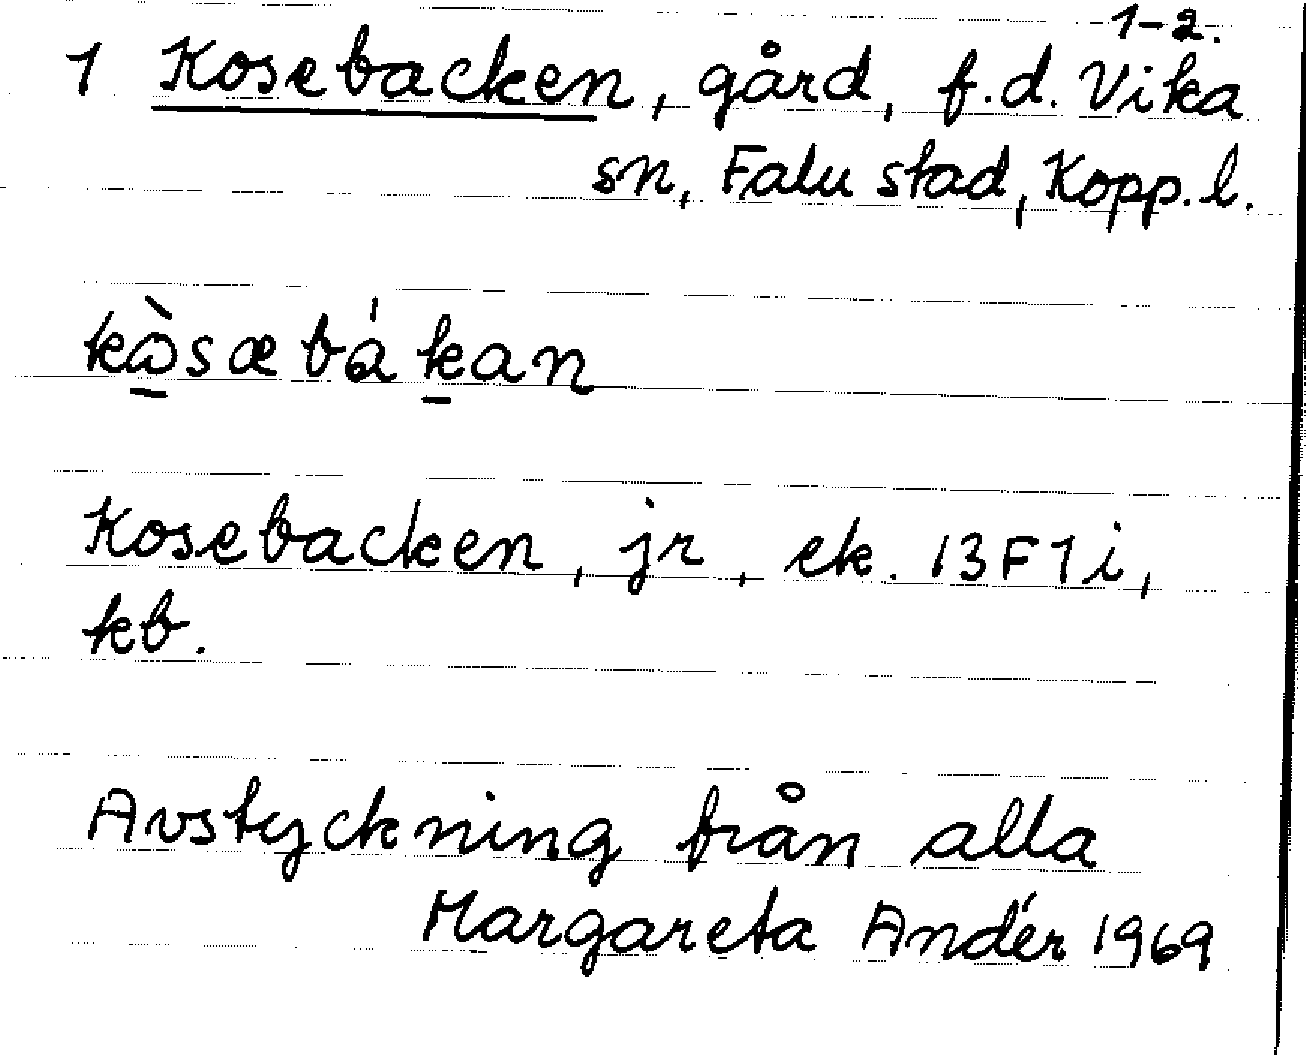 1-2.
1 Kosebacken, gård, f.d. Vika
sn, Falu stad, Kopp. l.
kòsæbákan
Kosebacken, jr, ek. 13F1i,
kb.
Avstyckning från alla
Margareta Andér 1969